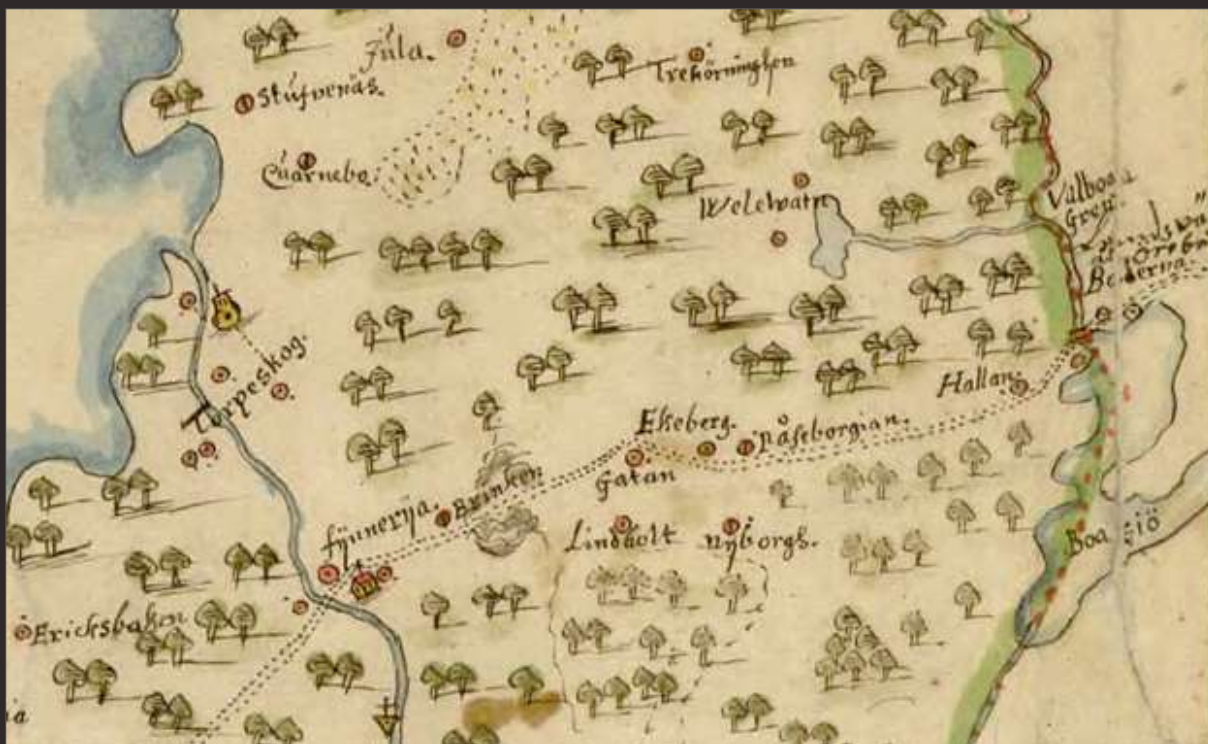 Jula.
Trehörninghen
Stufvenäs.
Quarnebo.
Welewatn
Valbosa
Gren.
Torpeskog.
Hallan.
Ekeberg.
Påseborgian.
Gatan
Brinken
fÿnnerÿa.
Lindholt
Nÿborgs.
Boa Siö
Ericksbaken